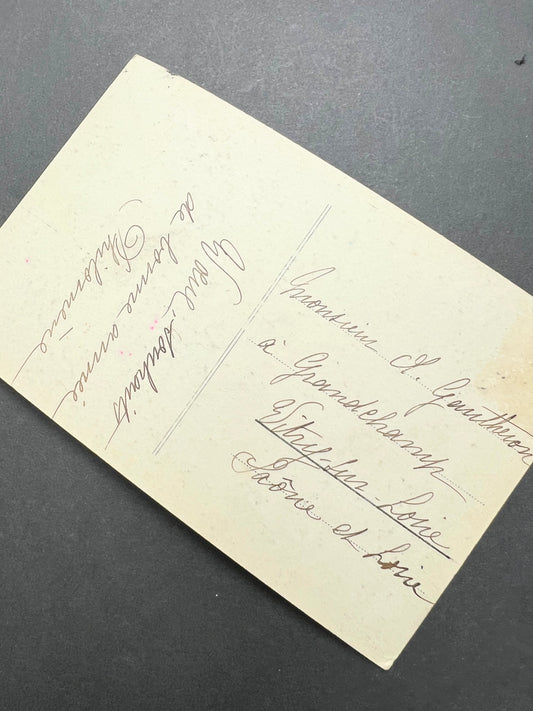 Voeux, souhaits
de bonne année
Philomène
Monsieur A. Gautheron
à Grandchamp
Vitry-sur-Loire
Saône et Loire